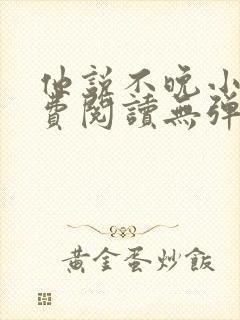 他說不晚小
費閱讀無彈
黃金蛋炒飯